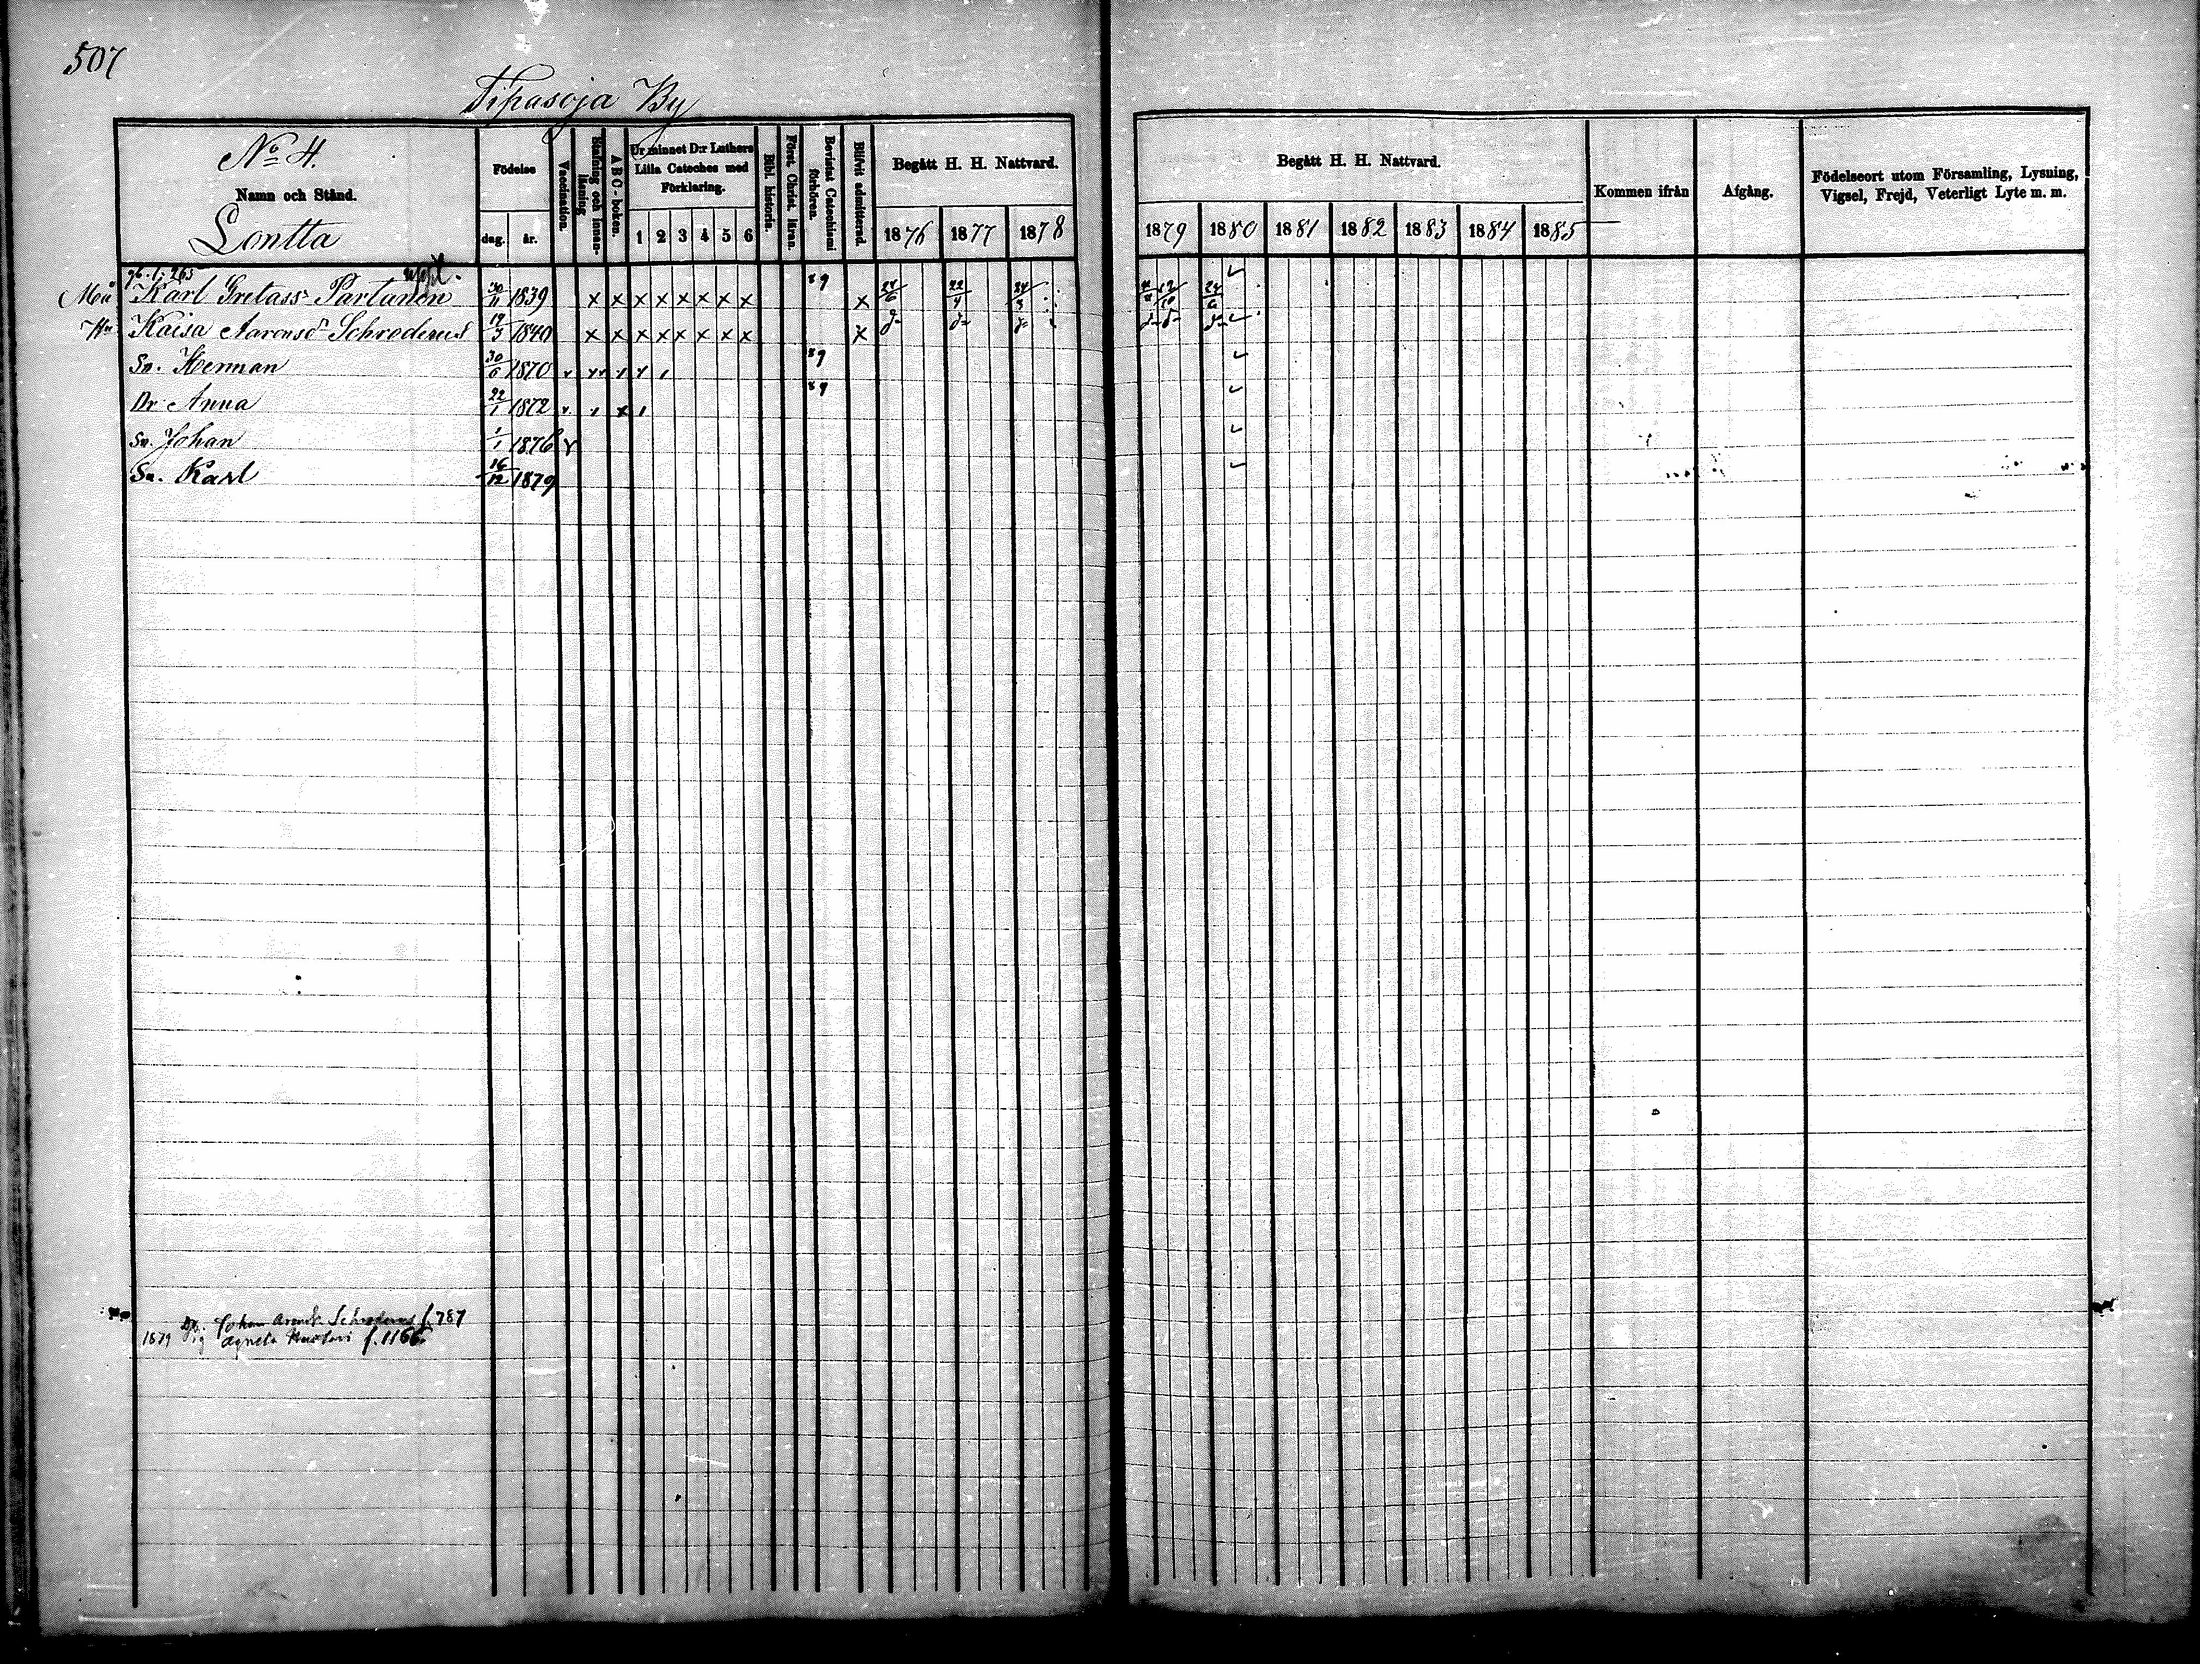 507
Tipasoja By
No 4.
Namn och Stånd.
Lontta
Födelse
dag. år.
Vaccination.
Stafning och innan-läsning
ABC-boken.
Ur minnet D:r Luthers Lilla Cateches med Förklaring.
1 2 3 4 5 6
Bibl. historia.
Först. Christ. läran.
Bevistat Catechismi förhören.
Blifvit admitterad.
Begått H. H. Nattvard.
1876 1877 1878
Begått H. H. Nattvard.
1879 1880 1881 1882 1883 1884 1885
Kommen ifrån
Afgång.
Födelseort utom Församling, Lysning, Vigsel, Frejd, Veterligt Lyte m. m.
265
Karl Gretass. Partanen 30/11 1839 x x x x x x x x 89 x 24/6 22/4 24/3 24/6
Hu Kaisa Aaronsd. Schroderus 1840 x x x x x x x x x
Sn. Herman 30/6 1870 89
Dr Anna 22/1 1872 x 89
Sn. Johan 1/1 1876 v
Sn. Karl 16/12 1879
Johan Schroderus f. 787
1879 Agneta f. 1166